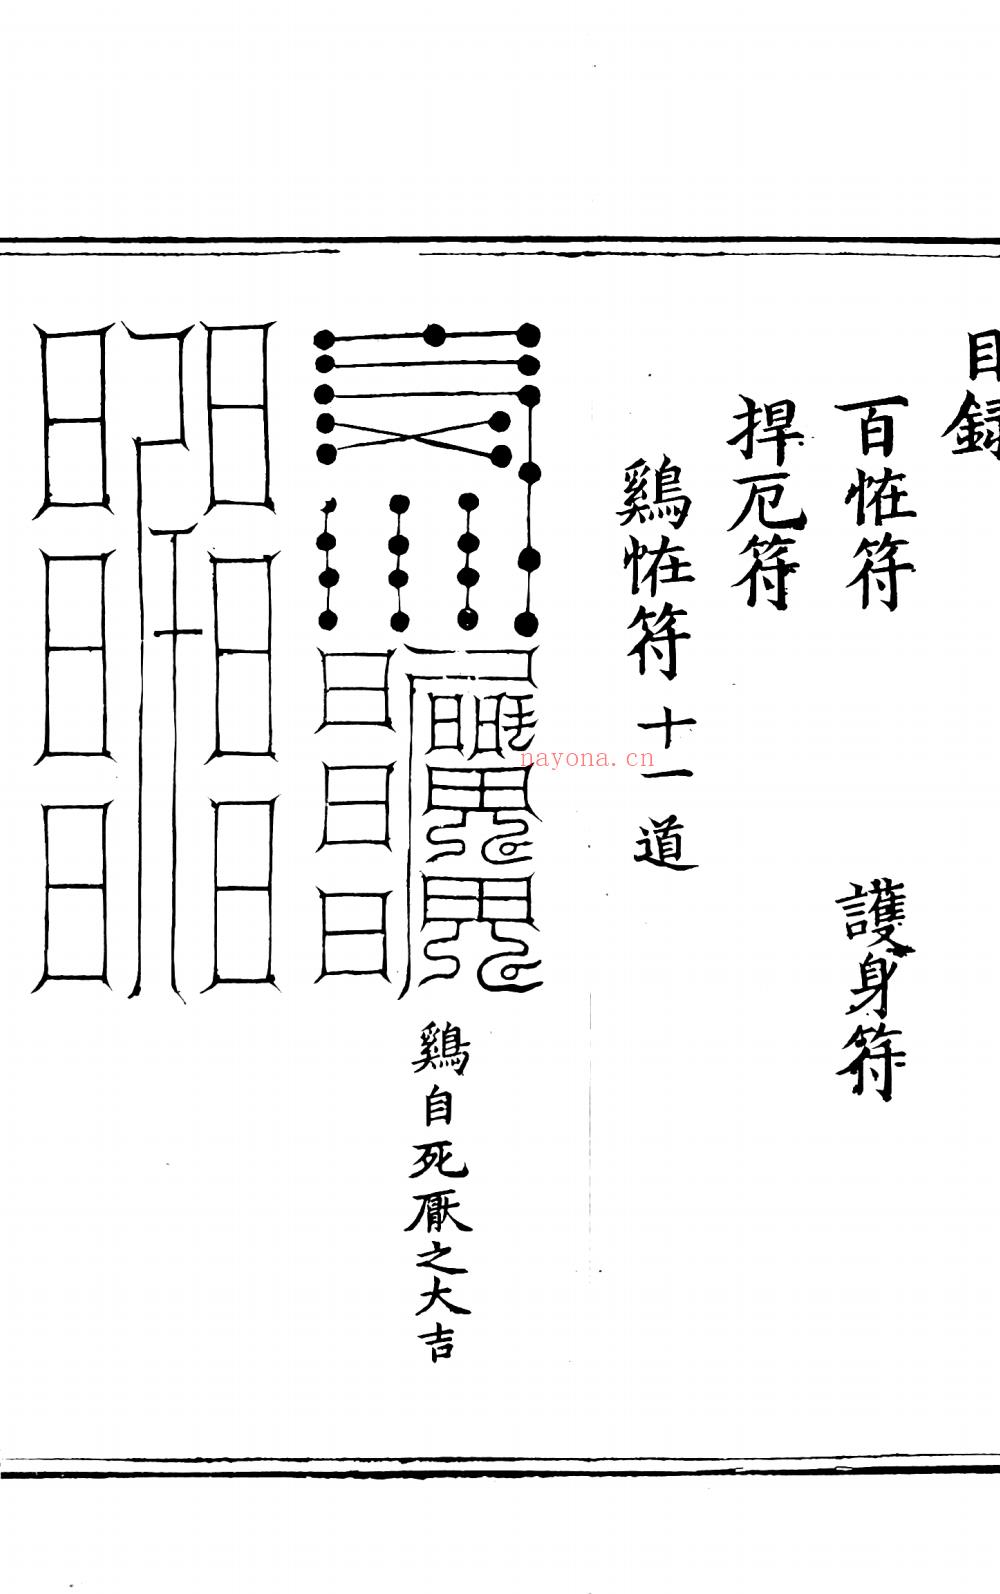 目録
百恠符
護身符
捍厄符
鷄恠符十一道
鷄自死厭之大吉
nayona.cn